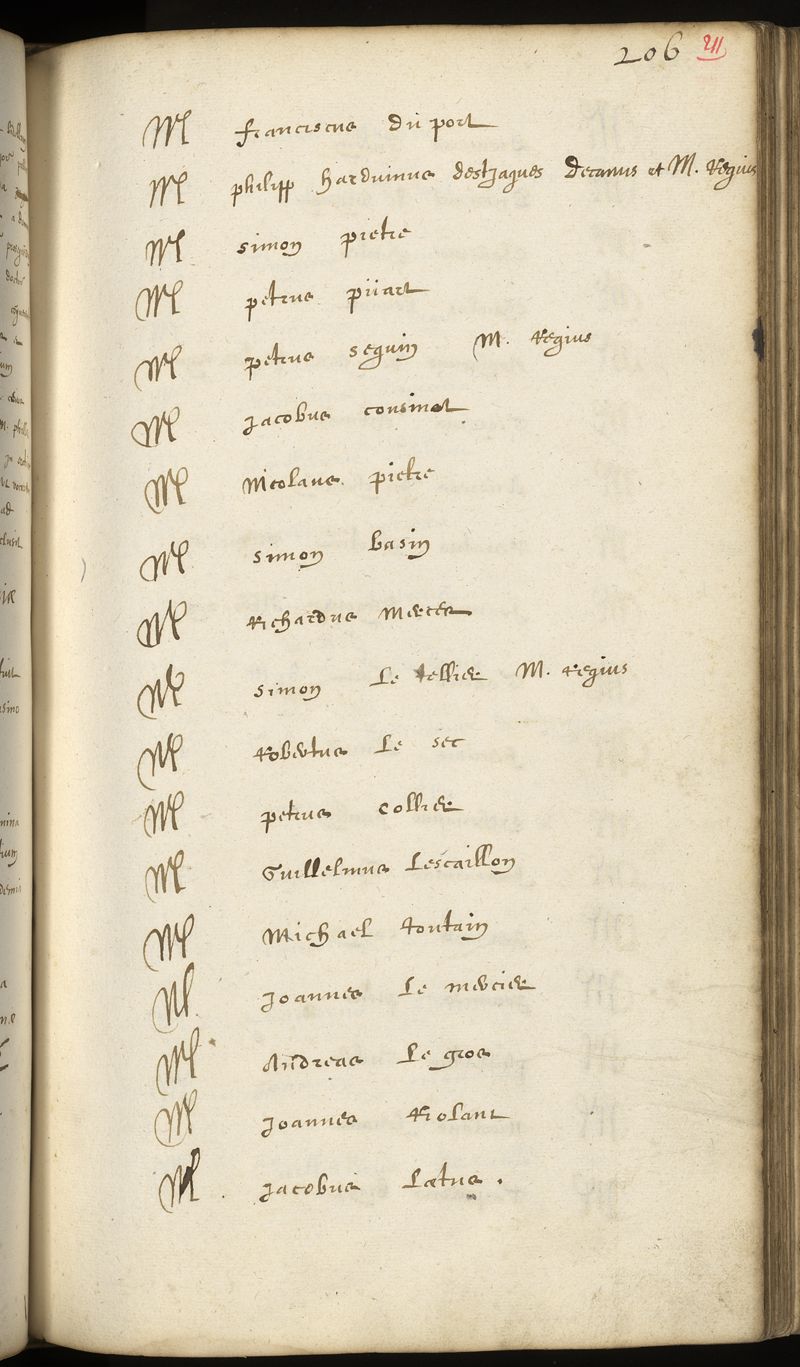 206 211
Ml franciscus du port
Ml philipp harduinus destJaques Decanus et M. Regius
Ml simon pietre
Ml petrus pijart
Ml petrus seguin M. Regius
Ml Jacobus cousinot
Ml Nicolaus pietre
Ml simon basin
Ml Richardus Mercer
Ml simon Le tellier M. Regius
Ml Robertus Le sec
Ml petrus collier
Ml Guillelmus Lescaillon
Ml Michael toutain
Ml Joannes Le mercier
Ml Andreas Le gros
Ml Joannes Rolant
Ml Jacobus Lætus.